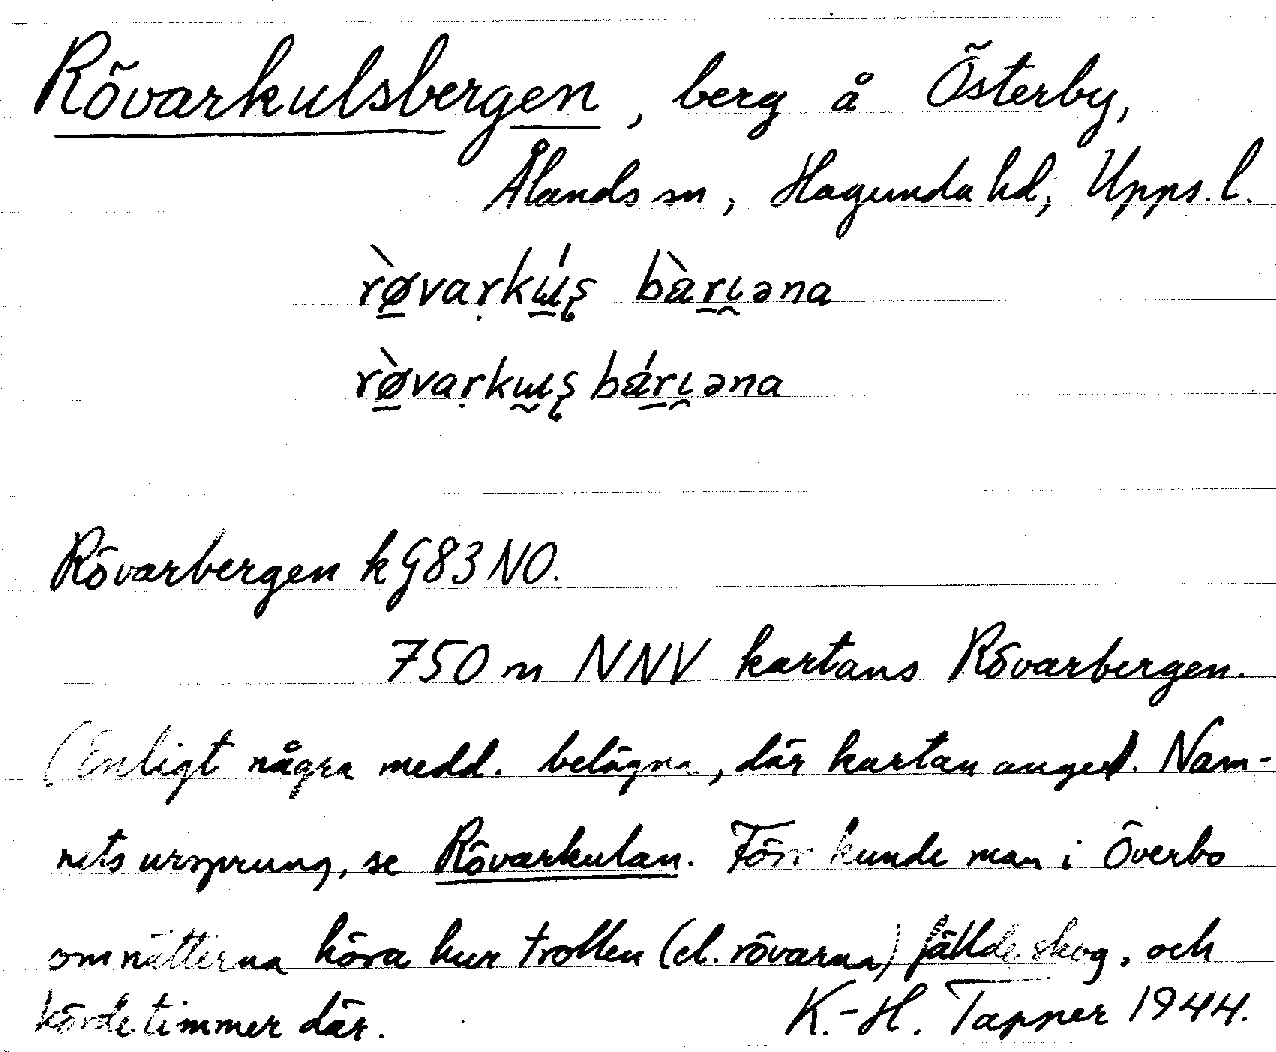 Rövarkulsbergen, berg å Österby,
Ålands sn, Hagunda hd, Upps. l.
Rövarbergen k G83 NO.
750 m NNV kartans Rövarbergen.
(Enligt några medd. belägna, där kartan anger). Nam-
nets ursprung, se Rövarkulan. Förr kunde man i Överbo
om nätterna höra hur trollen (el. rövarna) fällde skog, och
körde timmer där.
K.-H. Tapper 1944.